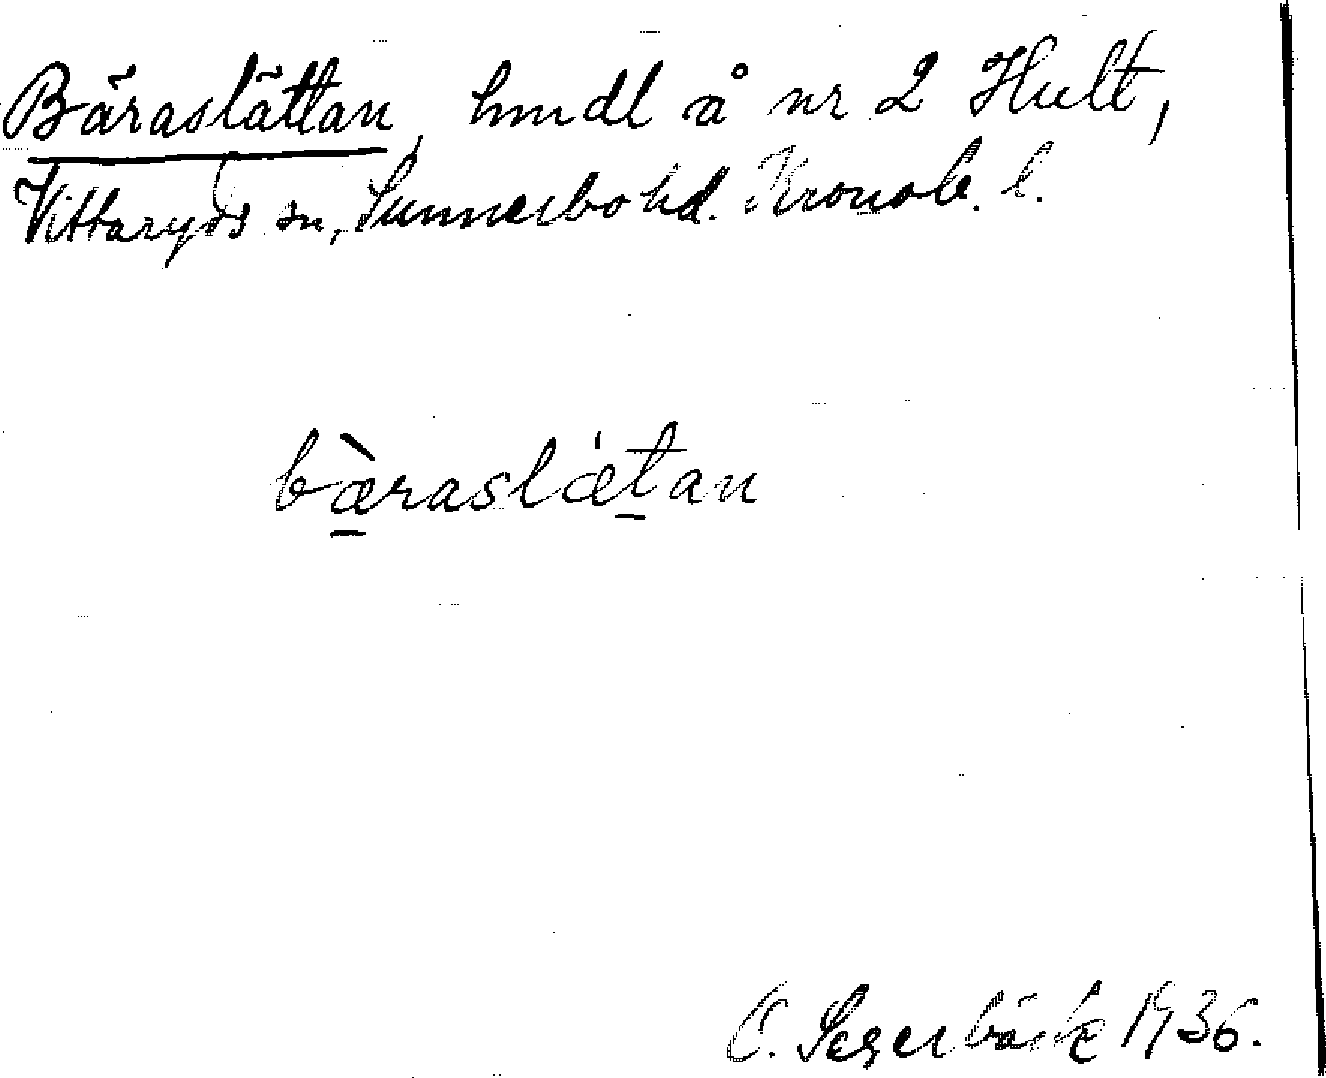 Bäraslättan, hmdl å nr 2 Hult,
Vittaryds sn, Sunnerbo hd. Kronob. l.
bæ̀raslǽtan
C. Segerbäck 1936.